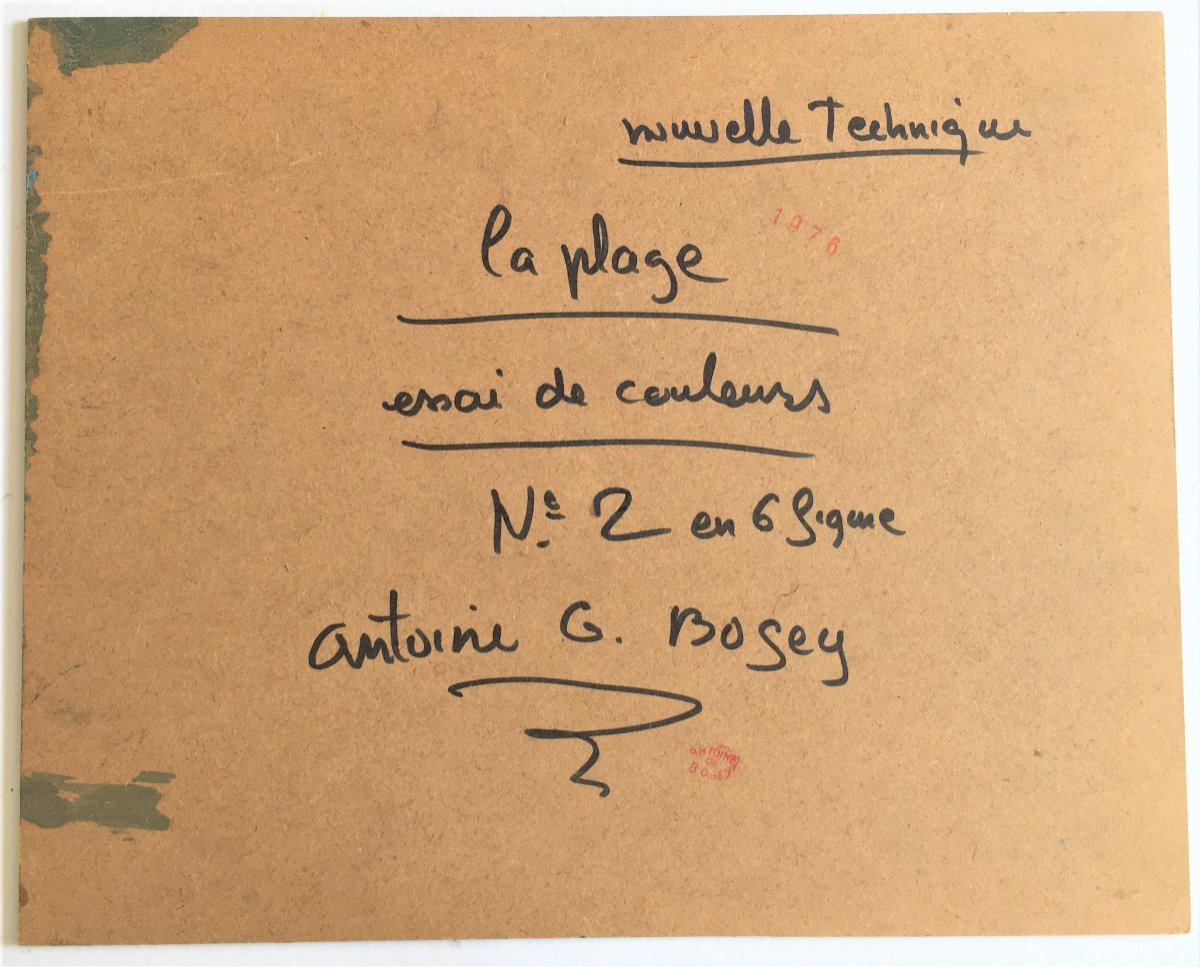 nouvelle Technique
1976
la plage
essai de couleurs
Nº 2 en 6 Figure
antoine G. Bosey
ANTOINE
G
BOSEY